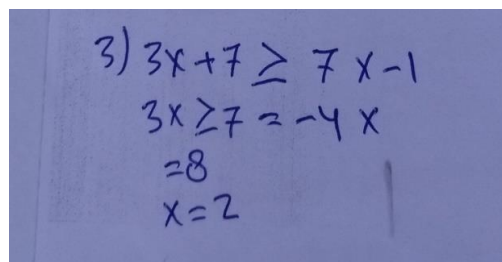 3) 3x+7 ≥ 7x-1
3x ≥ 7 = -4x
=8
x=2